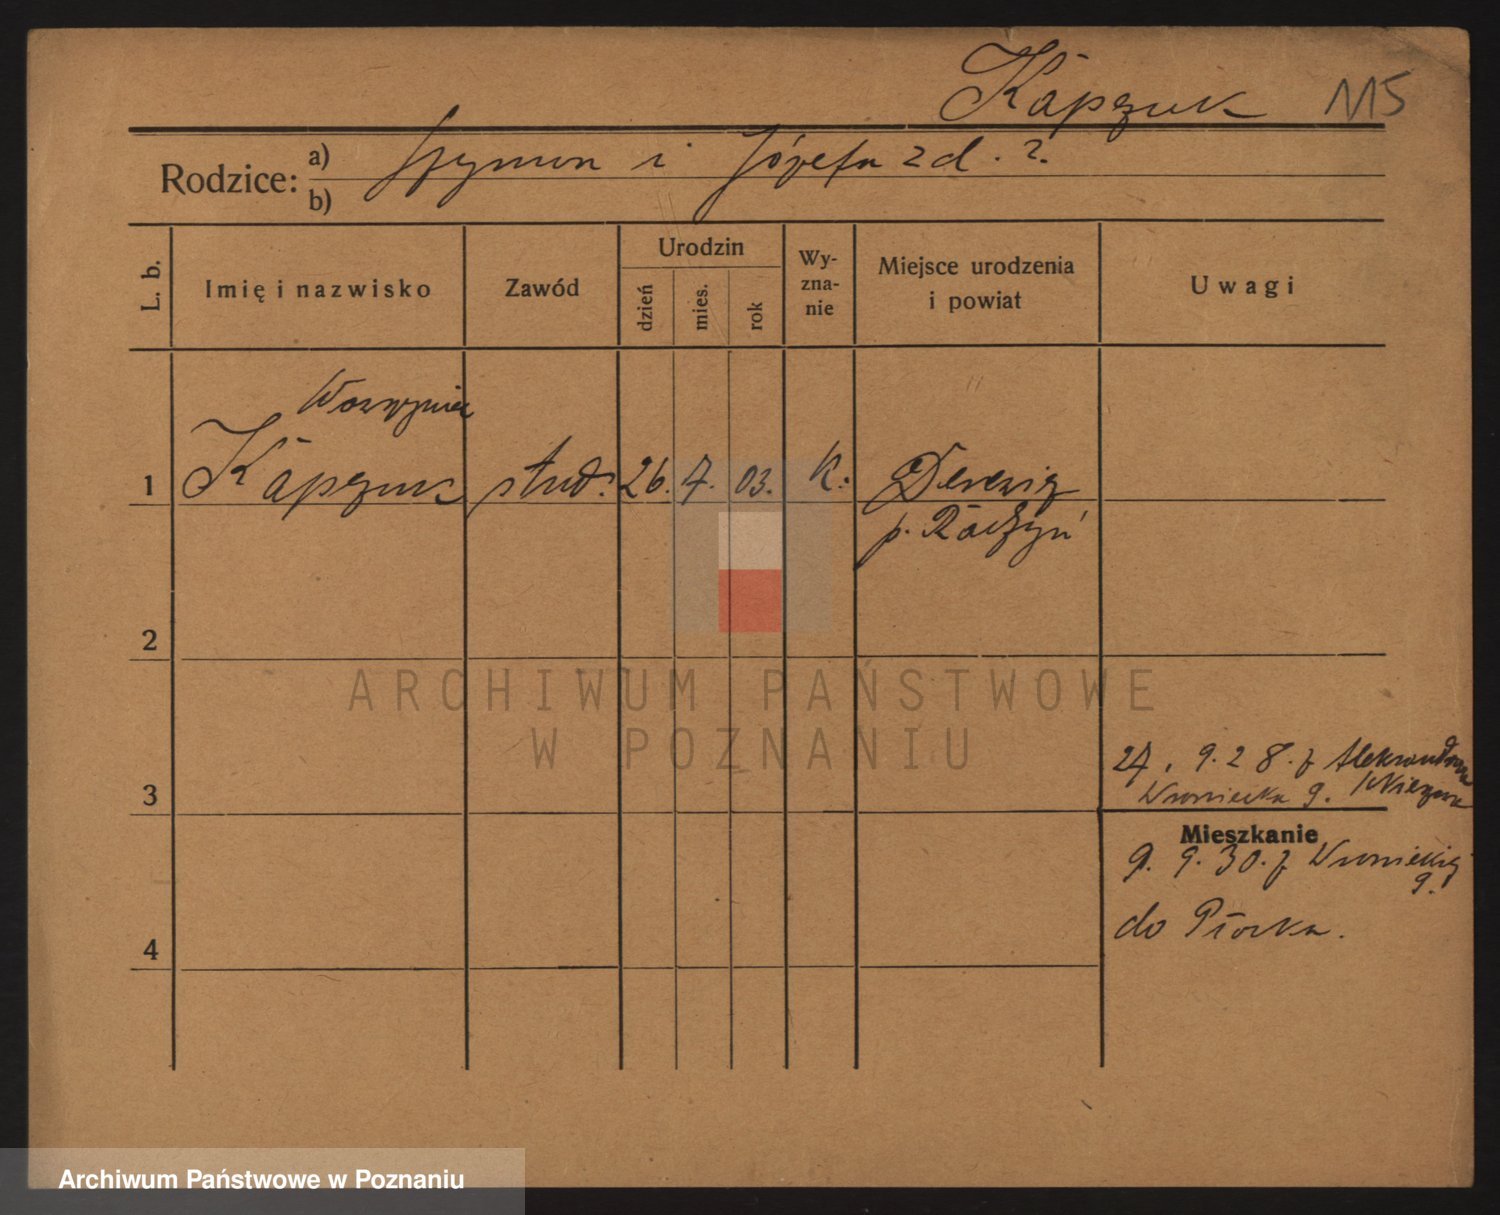 Kapczuk 115
Rodzice: a) Szymon i Józefa z d. ?
b)
L. b.
Imię i nazwisko
Zawód
Urodzin
dzień
mies.
rok
Wy-
zna-
nie
Miejsce urodzenia
i powiat
Uwagi
Wawrzyniec
1 Kapczuk stud. 26. 7. 03. k.
p.
2
ARCHIWUM PAŃSTWOWE
W POZNANIU
3
27. 9. 28. z
Wroniecka 9.
Mieszkanie
9. 9. 30. z Wronieckiej
9.
do Płocka.
4
Archiwum Państwowe w Poznaniu